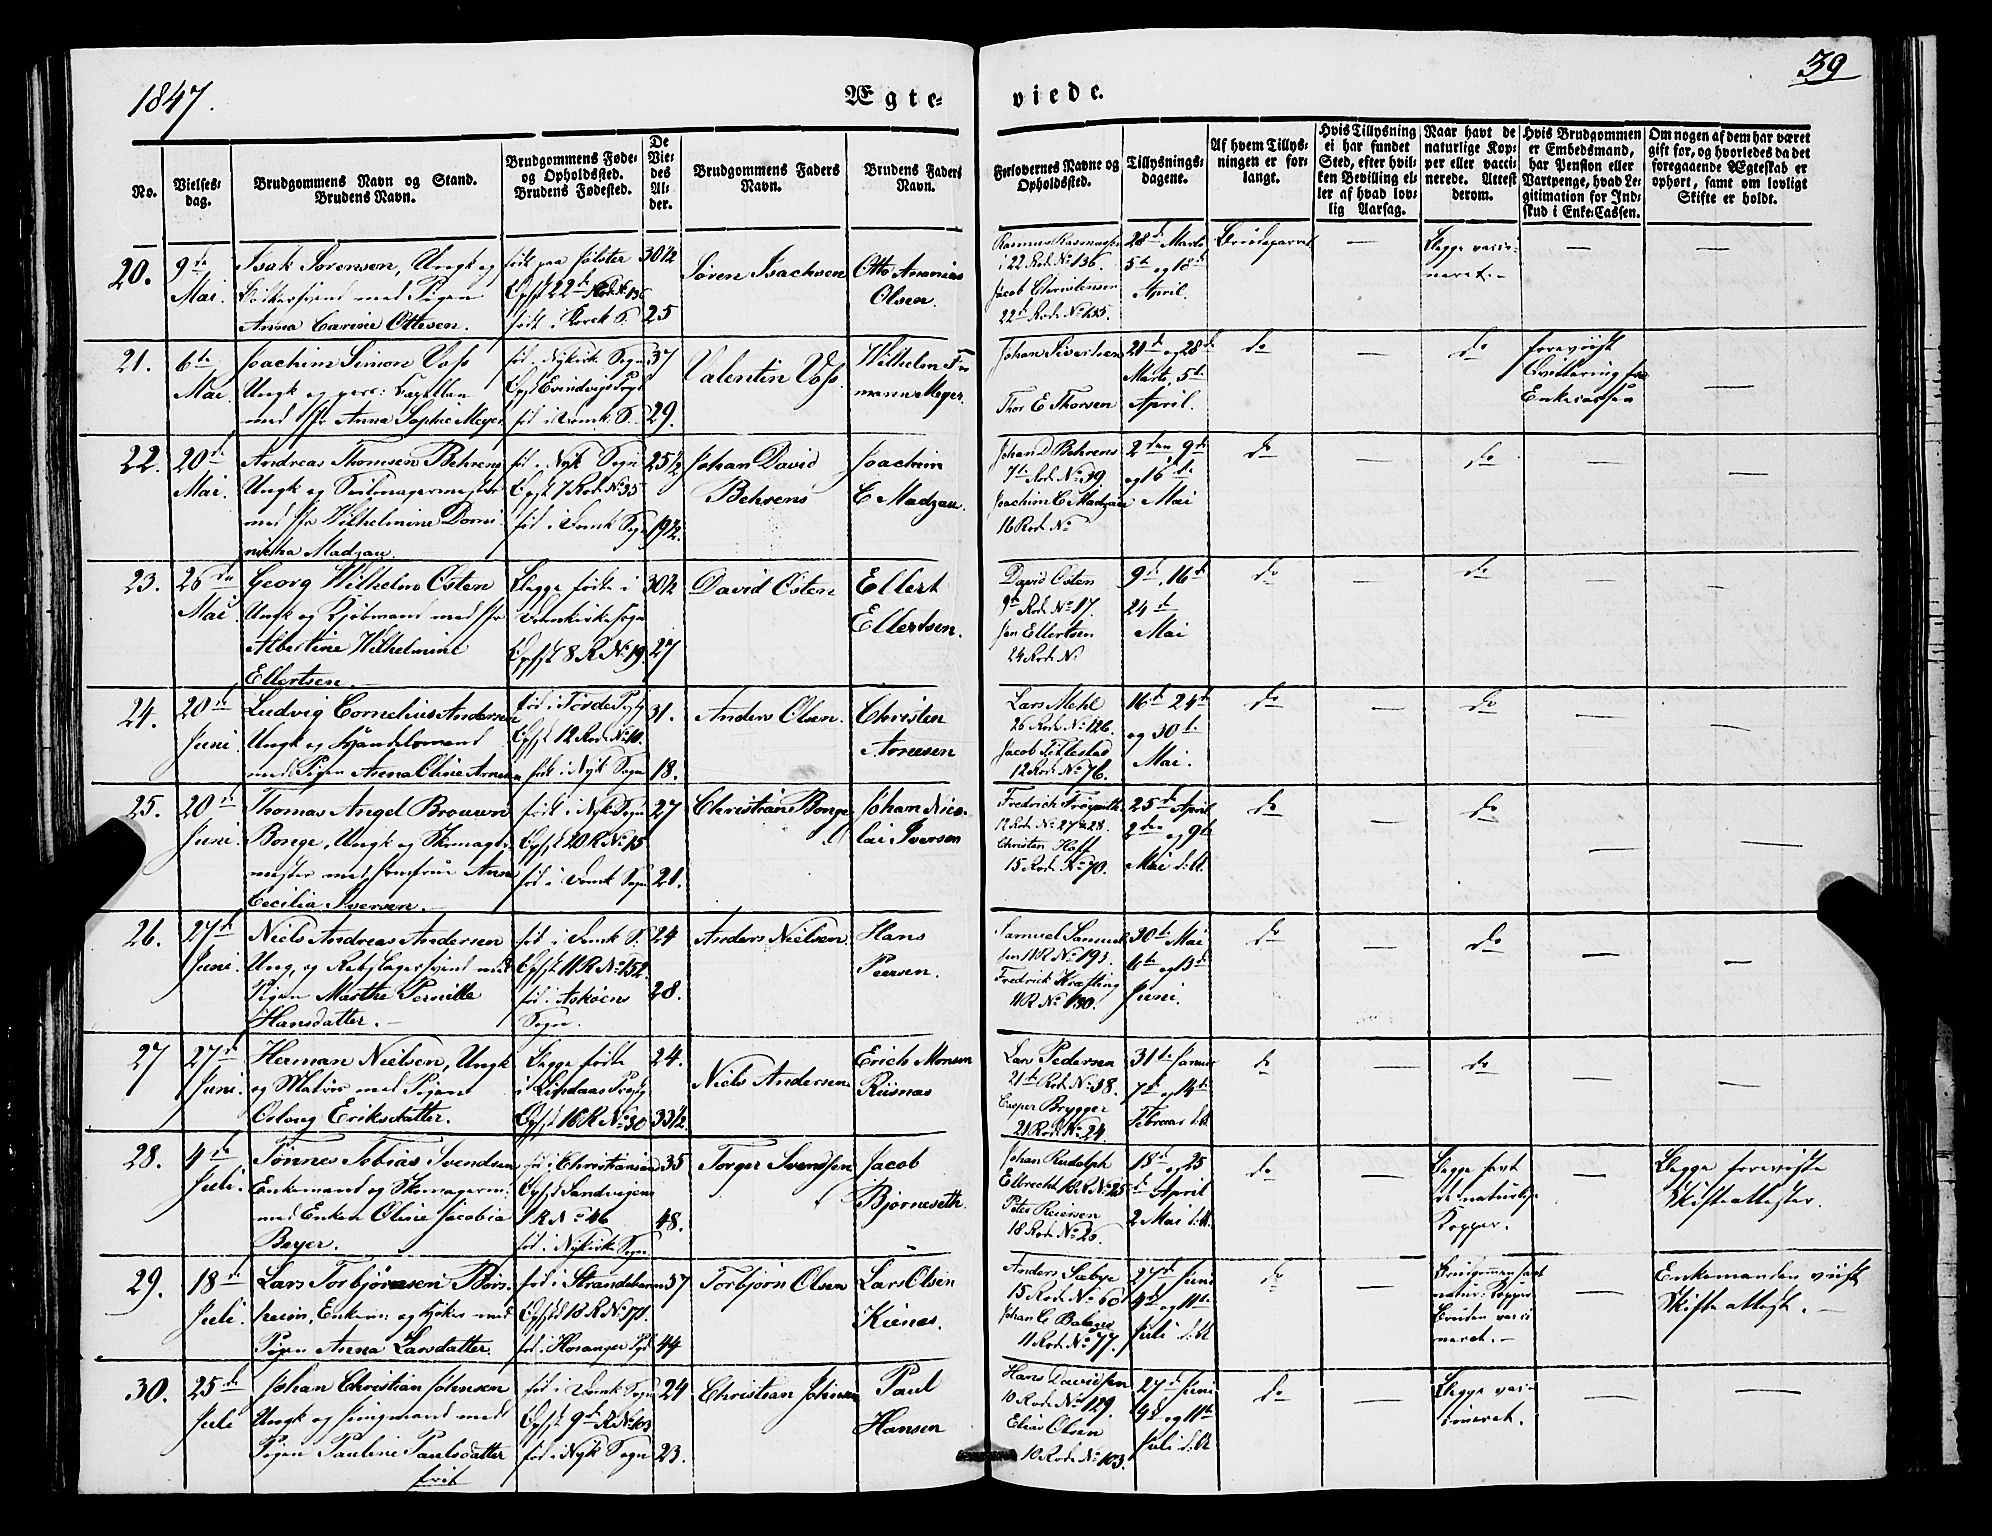 1847.
39
Ægte-
viede.
No.
Vielses-
dag.
Brudgommens Navn og Stand.
Brudens Navn.
Brudgommens Føde-
og Opholdssted.
Brudens Fødested.
De
Vie-
des
Al-
der.
Brudgommens Faders
Navn.
Brudens Faders
Navn.
Forlovernes Navne og
Opholdssted.
Tillysnings-
dagene.
Af hvem Tillys-
ningen er for-
langt.
Hvis Tillysning
ei har fundet
Sted, efter hvil-
ken Bevilling el-
ler af hvad lov-
lig Aarsag.
Naar havt de
naturlige Kop-
per eller vacci-
nerede. Attest
derom.
Hvis Brudgommen
er Embedsmand,
har Pension eller
Vartpenge, hvad Le-
gitimation for Ind-
skud i Enke-Cassen.
Om nogen af dem har været
gift før, og hvorledes da det
foregaaende Ægteskab er
ophørt, samt om lovligt
Skifte er holdt.
20.
9de
Mai.
Isak Sørensen, Ungk og
med Pigen
Anna Carine Ottesen.
født paa
Opst 22de Rode No 136
født i Korsk S.
30½
25
Søren Isachsen
Otto Ananias
Olsen.
Rasmus Rasmussen
i 22 Rod. No 136.
Jacob Christensen
22de Rod. No 135.
28de Marts
5te og 18de
April.
Brudeparret
—
Begge vacci-
neret. -
—
—
21.
6te
Mai
Joachim Simon Voss
Ungk og pers: Capellan
med Jfr Anna Sophie Meyer
fød i Nykirk. Sogn
Opst Evindvigs Prgj
fød i Domk. S.
37
29.
Valentin Voss.
Wilhelm
Meyer.
Johan Sivertsen
Thor E Thorsen
21de og 28de
Marts, 5te
April.
do
—
do
forevist
Qvittering fra
Enkecassen
—
22.
20de
Mai.
Andreas Thomsen Behrens
Ungk og Seilmagermester
med Jfr Wilhelmine Domi-
nicha Madzau.
fød i Nyk Sogn
Opst 7 Rod. No 35
fød i Domk Sogn
25½
19½.
Johan David
Behrens
Joachim
C Madzau.
Johan D Behrens
7de Rod. No 39.
Joachim C Madzau
16 Rod. No
2den, 9de
og 16de
Mai
do
—
do
—
—
23.
26de
Mai
Georg Wilhelm Østen
Ungk og Kjøbmand med Jfr
Albertine Wilhelmine
Ellertsen. —
Begge født i
Domkirke Sogn
Opst 8 R No 19.
30½
27
David Østen
Ellert
Ellertsen.
David Østen
9de Rod. No 17.
Jan Ellertsen
24 Rod. No
9de, 16de
24de
Mai
do
—
do
—
—
24.
20de
Juni.
Ludvig Cornelius Andersen
Ungk og Handelsmand
med Pigen Anna Oline Arnesen
fød i Førde Prgj
Opst 12 Rod. No 10.
født i Nyk Sogn
31.
18.
Anders Olsen.
Christen
Arnesen
Lars Mehl
26 Rod. No 126.
Jacob Tillestad
12 Rod. No 76.
16de 24de
og 30te
Mai.
do
—
do
—
—
25.
20de
Juni.
Thomas Angel Brouun
Bonge, Ungk og Skomager-
mester med Jomfrue Anne
Cecilia Iversen. —
født i Nyk Sogn
Opst 20 R No 15
fød i Domk Sogn
27
21.
Christian Bonge
Johan Nico-
lai Iversen
Fredrich
12 Rod. No 27 & 28.
Christen Hoff
15 Rod. No 70.
25de April
2den og 9de
Mai d:A
do
—
do
—
—
26.
27de
Juni.
Niels Andreas Andersen
Ung, og Rebslagersvend med
Pigen Marthe Pernille
Hansdatter. —
fød i Domk S.
Opst 11 R No 152.
fød i Askøens
Sogn.
24
28.
Anders Nielsen.
Hans
Peersen.
Samuel Samuel-
sen 11 R No 193.
Fredrick Kræfting
11 R No 130.
30te Mai
6te og 13de
Juni.
do
—
do
—
—
27
27de
Juni.
Herman Nielsen, Ungk
og Matros med Pigen
Oslaug Eriksdatter.
Begge fødte
i Lindaas Præstg
Opst 16 R No 30
24.
33½.
Niels Andersen
Erich Monsen
Riisnæs
Lars Pedersen
21de Rod. No 38.
Casper Brygger
21 Rod. No 24
31te Januar
7de og 14de
Februar d:A
do
—
do
—
—
28.
4de
Juli.
Tønnes Tobias Svendsen
Enkemand og Skomagerm:
med Enken Oline Jacobia
Beyer.
fød i Christiansand
Opst Sandvigen
1 R No 46
fød i Nykirke Sogn
35
48.
Torger Svendsen
Jacob
Bjørneseth.
Johan Rudolph
Ellrecht
Peter Reiersen
18 Rod. No 26
18de og 25
de April
2 Mai d:A
do
—
Begge havt
de naturlige
Kopper.
—
Begge foreviste
Skifteattester.
29.
18de
Juli.
Lars Torbjørnsen Bers-
heim, Enkem: og Høker med
Pigen Anna Larsdatter.
fød i Strandebarm
Opst 18 R No 171.
fød i Hosanger Pgd
57
44
Torbjørn Olsen
Lars Olsen
Kienes.
Anders Sæbye
15 Rod. No 60
Johan C
11 Rod. No 77.
27de Juni
4de og 11te
Juli d:A
do
—
Brudgommen havt
natur. Kopper
Bruden vacci-
neret. -
—
Enkemanden viist
Skifteattest. —
30.
25de
Juli
Johan Christian Johnsen
Ungk og med
Pigen Pauline Paulsdatter
fød i Domk Sogn
Opst 9de R No 103
fød i Nyk Sogn
24
23.
Christian Johnsen
Paul
Hansen
Hans Davidsen
10 Rod. No 129.
Elias Olsen
10 Rod. No 103.
27de Juni
4de og 11te
Juli d:A
do
—
Begge vac-
cineret.
—
—